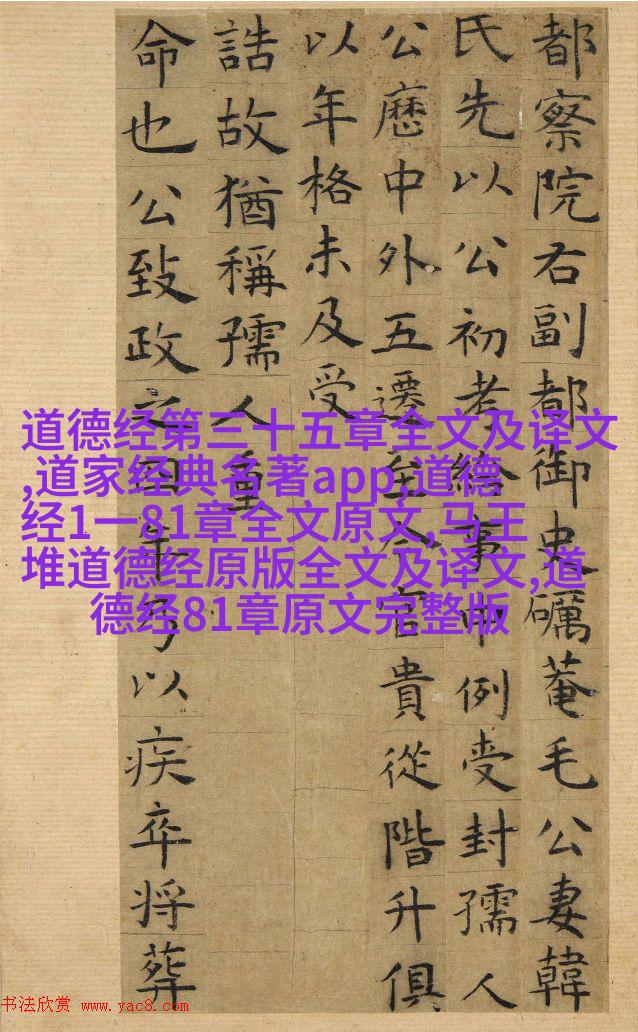 都察院右副都御史礪菴毛公妻韓
氏先以公初考給事中例受封孺人
公歷中外五遷至今官貴從階升俱
以年格未及受
誥故猶稱孺人重
命也公致政之四年以疾卒將葬
道德经第三十五章全文及译文
,道家经典名著app,道德
经1一81章全文原文,马王
堆道德经原版全文及译文,道
德经81章原文完整版
书法欣赏 www.yac8.com